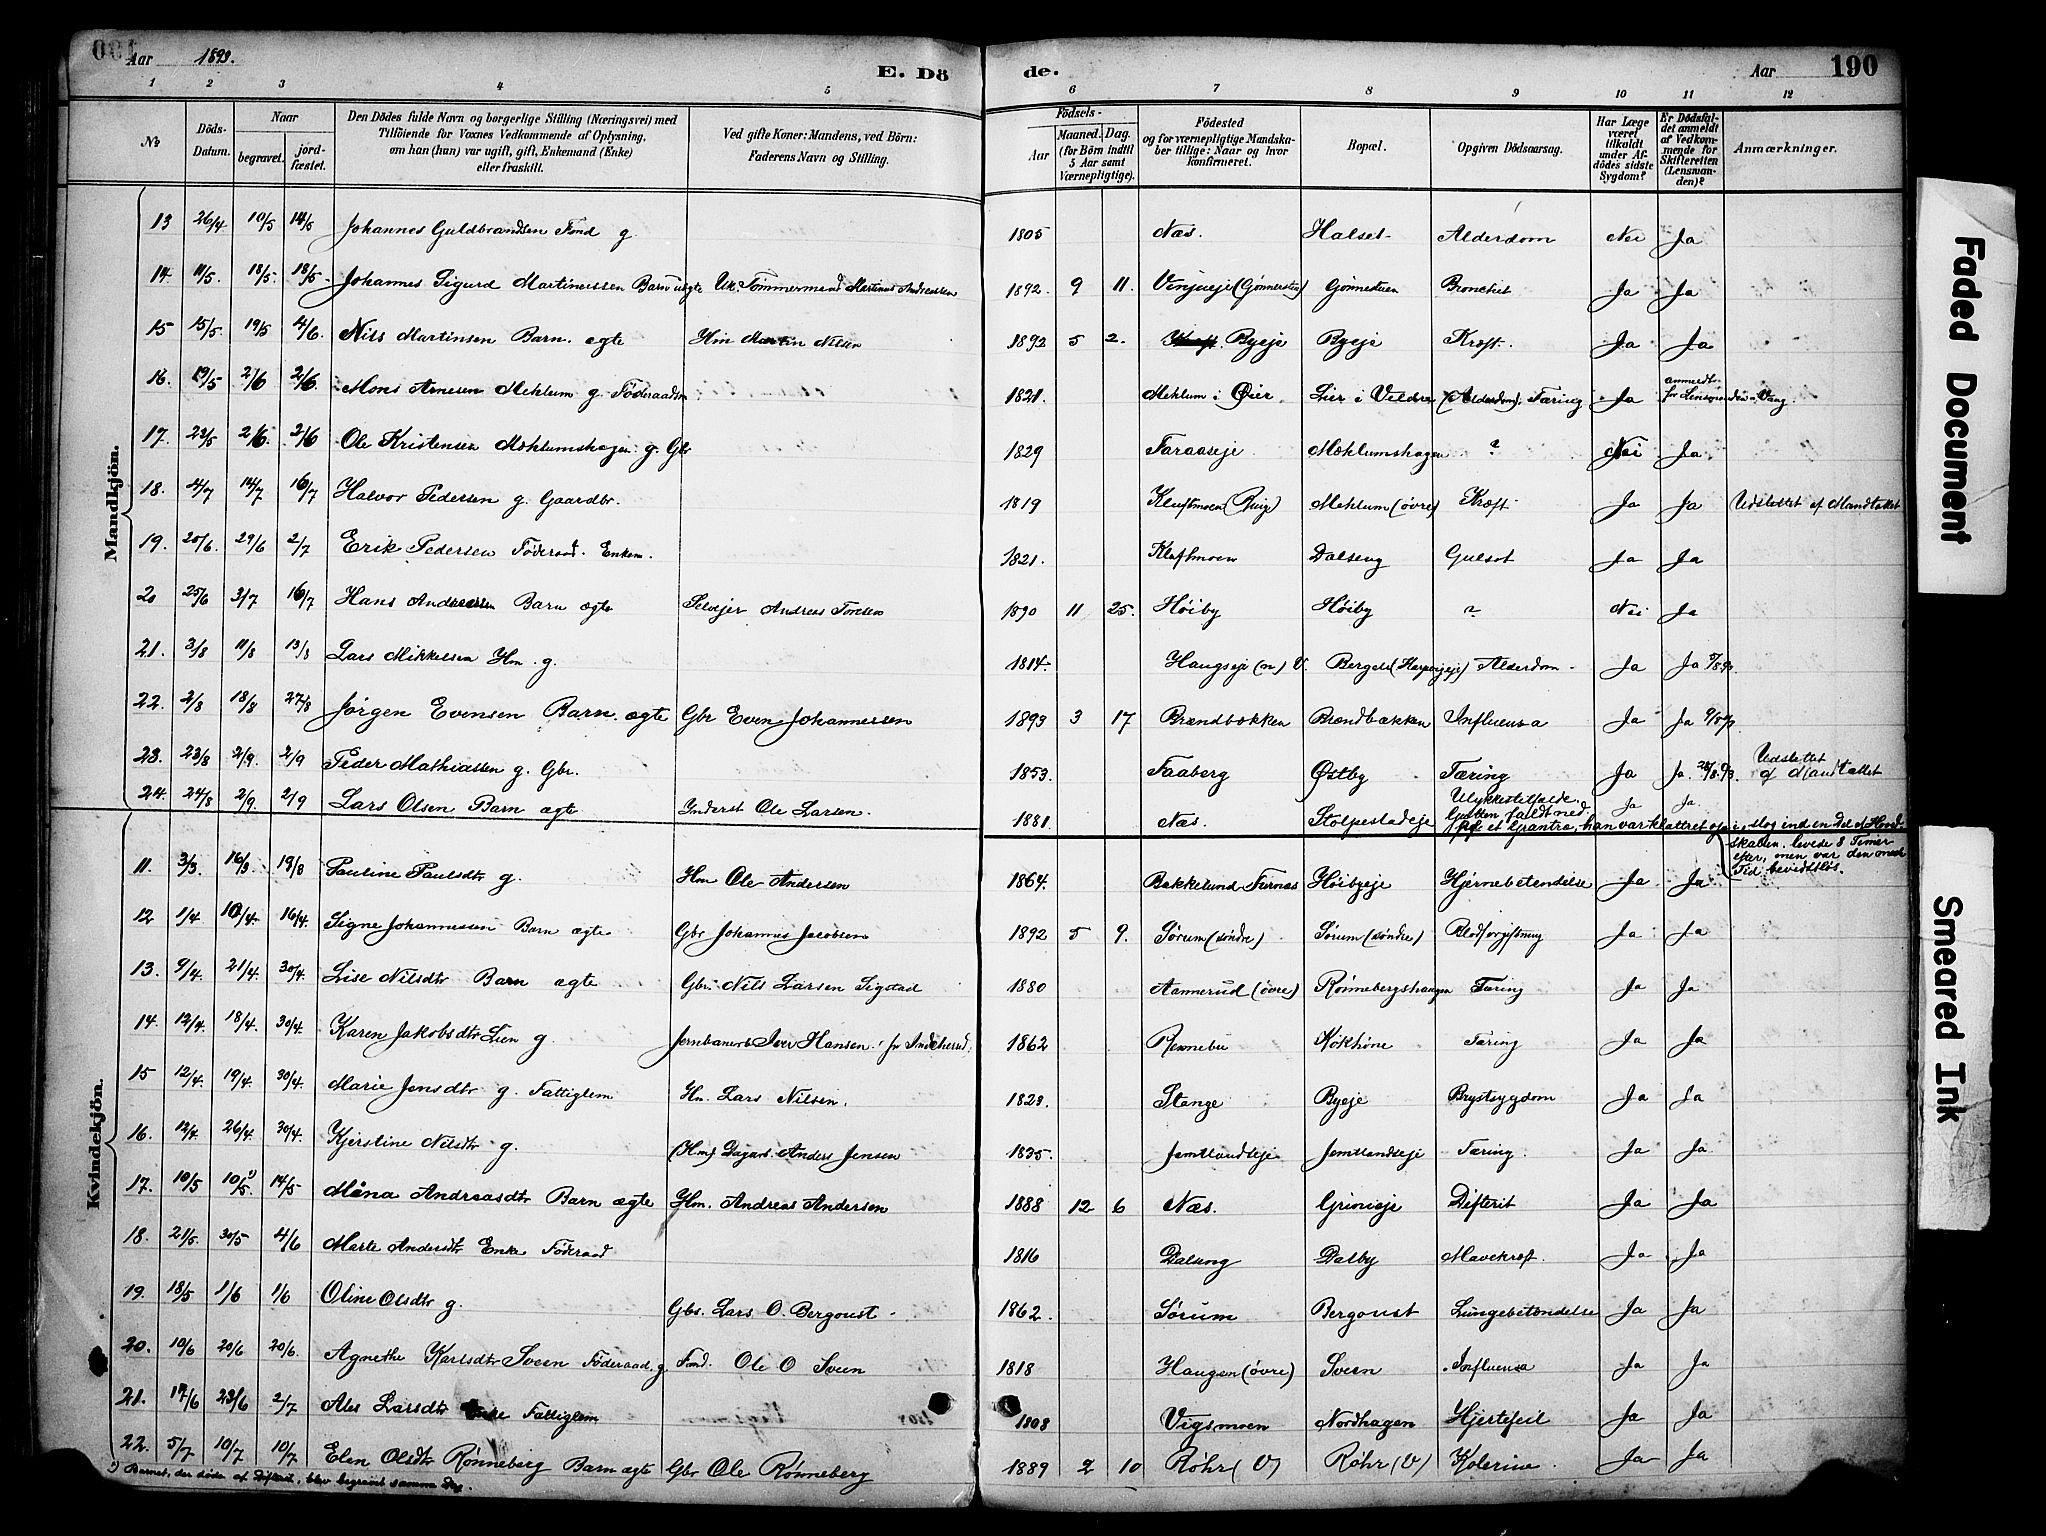 Aar 1893. E. Döde. Aar 190
1 2 3 4 5 6 7 8 9 10 11 12
No Döds-Datum. Naar begravet. jordfæstet. Den Dödes fulde Navn og borgerlige Stilling (Næringsvei) med Tilföiende for Voxnes Vedkommende af Oplysning, om han (hun) var ugift, gift, Enkemand (Enke) eller fraskilt. Ved gifte Koner: Mandens, ved Börn: Faderens Navn og Stilling. Födsels- Aar Maaned. Dag. (for Börn indtil 5 Aar samt Værnepligtige). Födested og for værnepligtige Mandskaber tillige: Naar og hvor konfirmeret. Bopæl. Opgiven Dödsaarsag. Har Læge været tilkaldt under Afdödes sidste Sygdom? Er Dödsfaldet anmeldt af Vedkommende for Skifteretten (Lensmanden)? Anmærkninger.
Mandkjön.
13 26/4 10/5 14/5 Johannes Guldbrandsen Fond g. 1805 Næs. Halset Alderdom Nei Ja
14. 11/5. 18/5. 18/5. Johannes Sigurd Martinussen Barn uægte Uk. Tømmermand Martinus Andreassen 1892. 9 11. Vinjueje (Gønnersten) Gønnersten Bronchit Ja Ja
15 15/5. 19/5 4/6. Nils Martinsen Barn. ægte Hm Martin Nilsen 1892 5 2. Byeje Byeje Kræft. Ja Ja
16. 19/5 2/6 2/6 Mons Arnesen Mehlum g. Føderaadsm 1821. Mehlum i Øier Lier i Veldre (Alderdom). Tæring Ja anmeldt for Lensmanden i Vang.
17. 23/5 2/6. 2/6 Ole Kristensen Mæhlumshagen g. Gbr 1829 Taraaseje Mæhlumshagen ? Nei Ja
18. 4/7 14/7 16/7 Halvor Pedersen g. Gaardbr. 1819 Kluftmoen (Ring) Mehlum (øvre) Kræft Ja Ja Udslettet af Mandtallet
19. 20/6. 29/6 2/7 Erik Pedersen Føderaad. Enkem. 1821. Kluftmoen Dalseng Gulsot Ja Ja
20 25/6 3/7 16/7 Hans Andreassen Barn ægte Selvejer Andreas Toresen 1890 11 25. Høiby Høiby ? Nei Ja
21. 3/8 11/8 13/8 Lars Mikkelsen Hm. g. 1814. Haugseje (n) V. Berget (Harpergeje) Alderdom Ja Ja
22. 2/8 18/8 27/8 Jørgen Evensen Barn. ægte Gbr Even Johannessen 1893 3 17 Brændbækken Brændbækken Influensa Ja Ja
23. 23/8 2/9. 2/9 Peder Mathiassen g. Gbr. 1853. Faaberg Østby Tæring Ja Ja. 28/8.93. Udslettet af Mandtallet
24. 24/8 2/9. 2/9 Lars Olsen Barn ægte Inderst Ole Larsen. 1881. Næs. Stolpestadeje Ulykkestilfælde. Gutten faldt ned af et Grantræ, han var klattret op i, slog ind en Del af Hovedskallen. levede 8 Timer efter, men var den meste Tid bevidstløs. Ja Ja.
Kvindekjön.
11. 3/3. 16/3 19/3 Pauline Paulsdtr g. Hm Ole Andersen 1864. Bakkelund Furnæs Høibyeje Hjernebetændelse Ja Ja
12 1/4. 10/4. 16/4. Signe Johannessen Barn ægte Gbr Johannes Jacobsen 1892 5 9. Sørum (søndre) Sørum (søndre) Blodforgiftning Ja Ja
13. 9/4. 21/4. 30/4. Lise Nilsdtr Barn ægte Gbr. Nils Larsen Sigstad 1880 Aannerud (øvre) Rønnebergshaugen Tæring Ja Ja
14. 12/4. 18/4. 30/4. Karen Jakobsdtr Lien g. Jernbanearb Iver Hansen 1862 Rennebu Kokhöne Tæring Ja Ja
15 12/4. 19/4. 30/4. Marie Jensdtr. g. Fattiglem Hm. Lars Nilsen. 1823. Stange Byeje Brystsygdom Ja Ja
16. 12/4. 26/4. 30/4. Kjerstine Nilsdtr g. (Hm) Dagarb. Anders Jensen 1825. Jemtlandseje Jemtlandseje Tæring. Ja Ja
17. 10/5 10/5 ¹) 14/5 Mina Andreasdtr Barn ægte Hm. Andreas Andersen 1888 12 6 Næs. Grimseje Difterit Ja Ja
18. 21/5. 30/5 4/6 Marte Andersdtr Enke Føderaad 1816 Dalseng Dalby Mavekræft. Ja Ja
19. 18/5 1/6 1/6 Oline Olsdtr g. Gbr. Lars O. Bergoust 1862. Sørum Bergoust Lungebetændelse Ja Ja
20. 10/6 20/6 20/6. Agnethe Karlsdtr Sveen Føderaad. g. Føad. Ole O Sveen 1818 Haugen (øvre) Sveen Influensa Ja Ja
21. 17/6 23/6 2/7 Ales Larsdtr Enke Fattiglem 1808 Vigsmoen Nordhagen Hjertefeil Ja Ja
22. 5/7 10/7 10/7 Elen Olsdtr Rønneberg Barn ægte Gbr Ole Rønneberg 1889 2 10 Röhr (V) Röhr (V) Kolerine. Ja Ja
¹) Barnet, der døde af Difterit, blev begravet samme Dag.
Faded Document
Smeared Ink